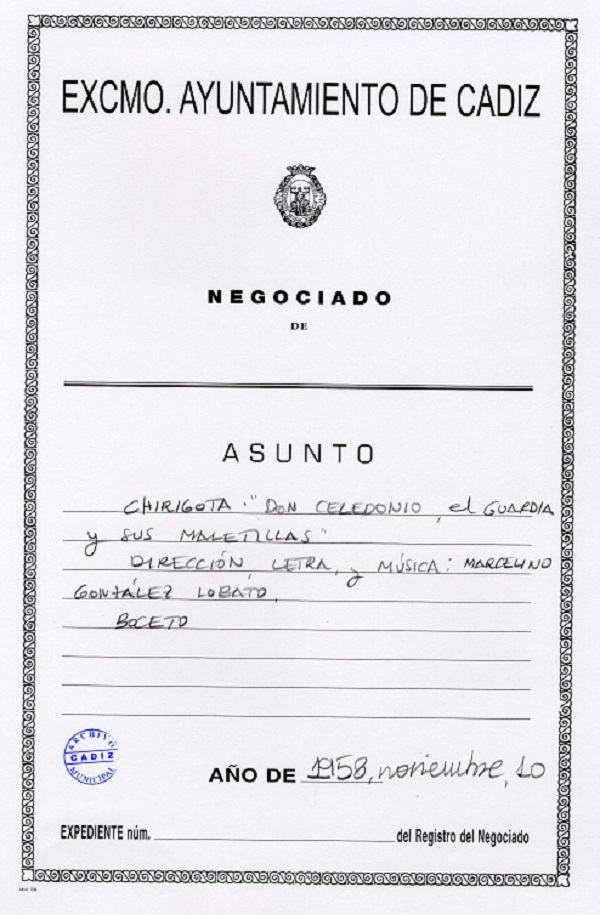 EXCMO. AYUNTAMIENTO DE CADIZ
NEGOCIADO
DE
ASUNTO
CHIRIGOTA "DON CELEDONIO, el GUARDIA
y SUS MALETILLAS"
DIRECCIÓN, LETRA, y MÚSICA: MARCELINO
GONZÁLEZ LOBATO.
BOCETO
ARCHIVO
CADIZ
MUNICIPAL
AÑO DE 1958, noviembre, 10
EXPEDIENTE núm. del Registro del Negociado